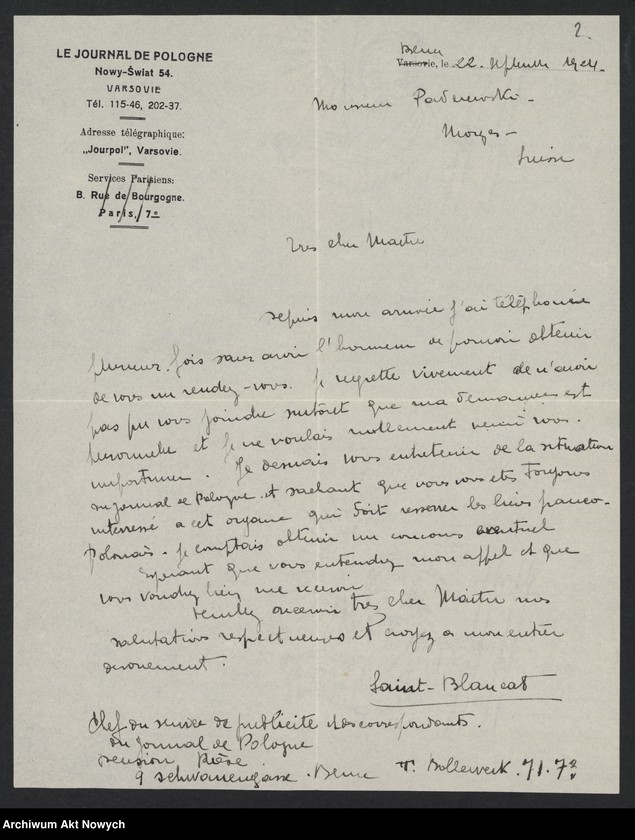 2.
LE JOURNAL DE POLOGNE
Nowy-Świat 54.
VARSOVIE
Tél. 115-46, 202-37.
Adresse télégraphique:
„Jourpol", Varsovie.
Services Parisiens:
8. Rue de Bourgogne.
Paris, 7e
Berne
Varsovie, le 22. Septembre 1924.
Monsieur Paderewski -
Morges -
Suisse
Tres cher Maitre
Depuis mon arrivée j'ai téléphoné
plusieurs fois sans avoir l'honneur de pouvoir obtenir
de vous un rendez-vous. Je regrette vivement de n'avoir
pas pu vous joindre surtout que ma demarche est
personnelle et je ne voulais nullement venir vous
importuner. Je desirais vous entretenir de la situation
du journal de Pologne et sachant que vous vous etes toujours
interressé a cet organe qui doit resserrer les liens franco-
Polonais. je comptais obtenir un concours eventuel
Esperant que vous entendrez mon appel et que
vous voudrez bien me recevoir
Veuillez recevoir tres cher Maitre mes
salutations respectueuses et croyez a mon entier
devouement.
Saint-Blancat
Chef du service de publicite et des correspondants.
du journal de Pologne
Pension
9 Schwanengasse. Berne T. Bollewerk. 71.72
Archiwum Akt Nowych